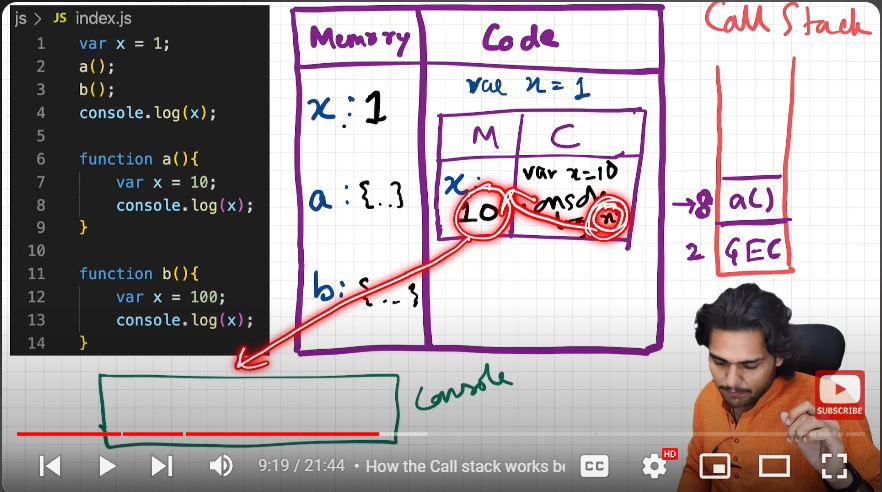 js > JS index.js
1 var x = 1;
2 a();
3 b();
4 console.log(x);
5
6 function a(){
7 var x = 10;
8 console.log(x);
9 }
10
11 function b(){
12 var x = 100;
13 console.log(x);
14 }
Memory
Code
var x = 1
x : 1
a : {..}
b : {...}
M
C
x :
10
var x=10
x
Call Stack
8 a()
2 GEC
Console
SUBSCRIBE
9:19 / 21:44 • How the Call stack works be
CC
HD